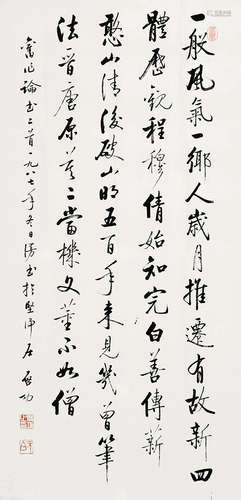 一般風氣一鄉人歲月推遷有故新四
體歷觀程穆倩始知完白善傳薪
憨山清後破山明五百年來見幾曾筆
法晉唐原莫二當機文董不如僧
舊作論書二首一九八七年冬日漫書於堅淨居 啟功